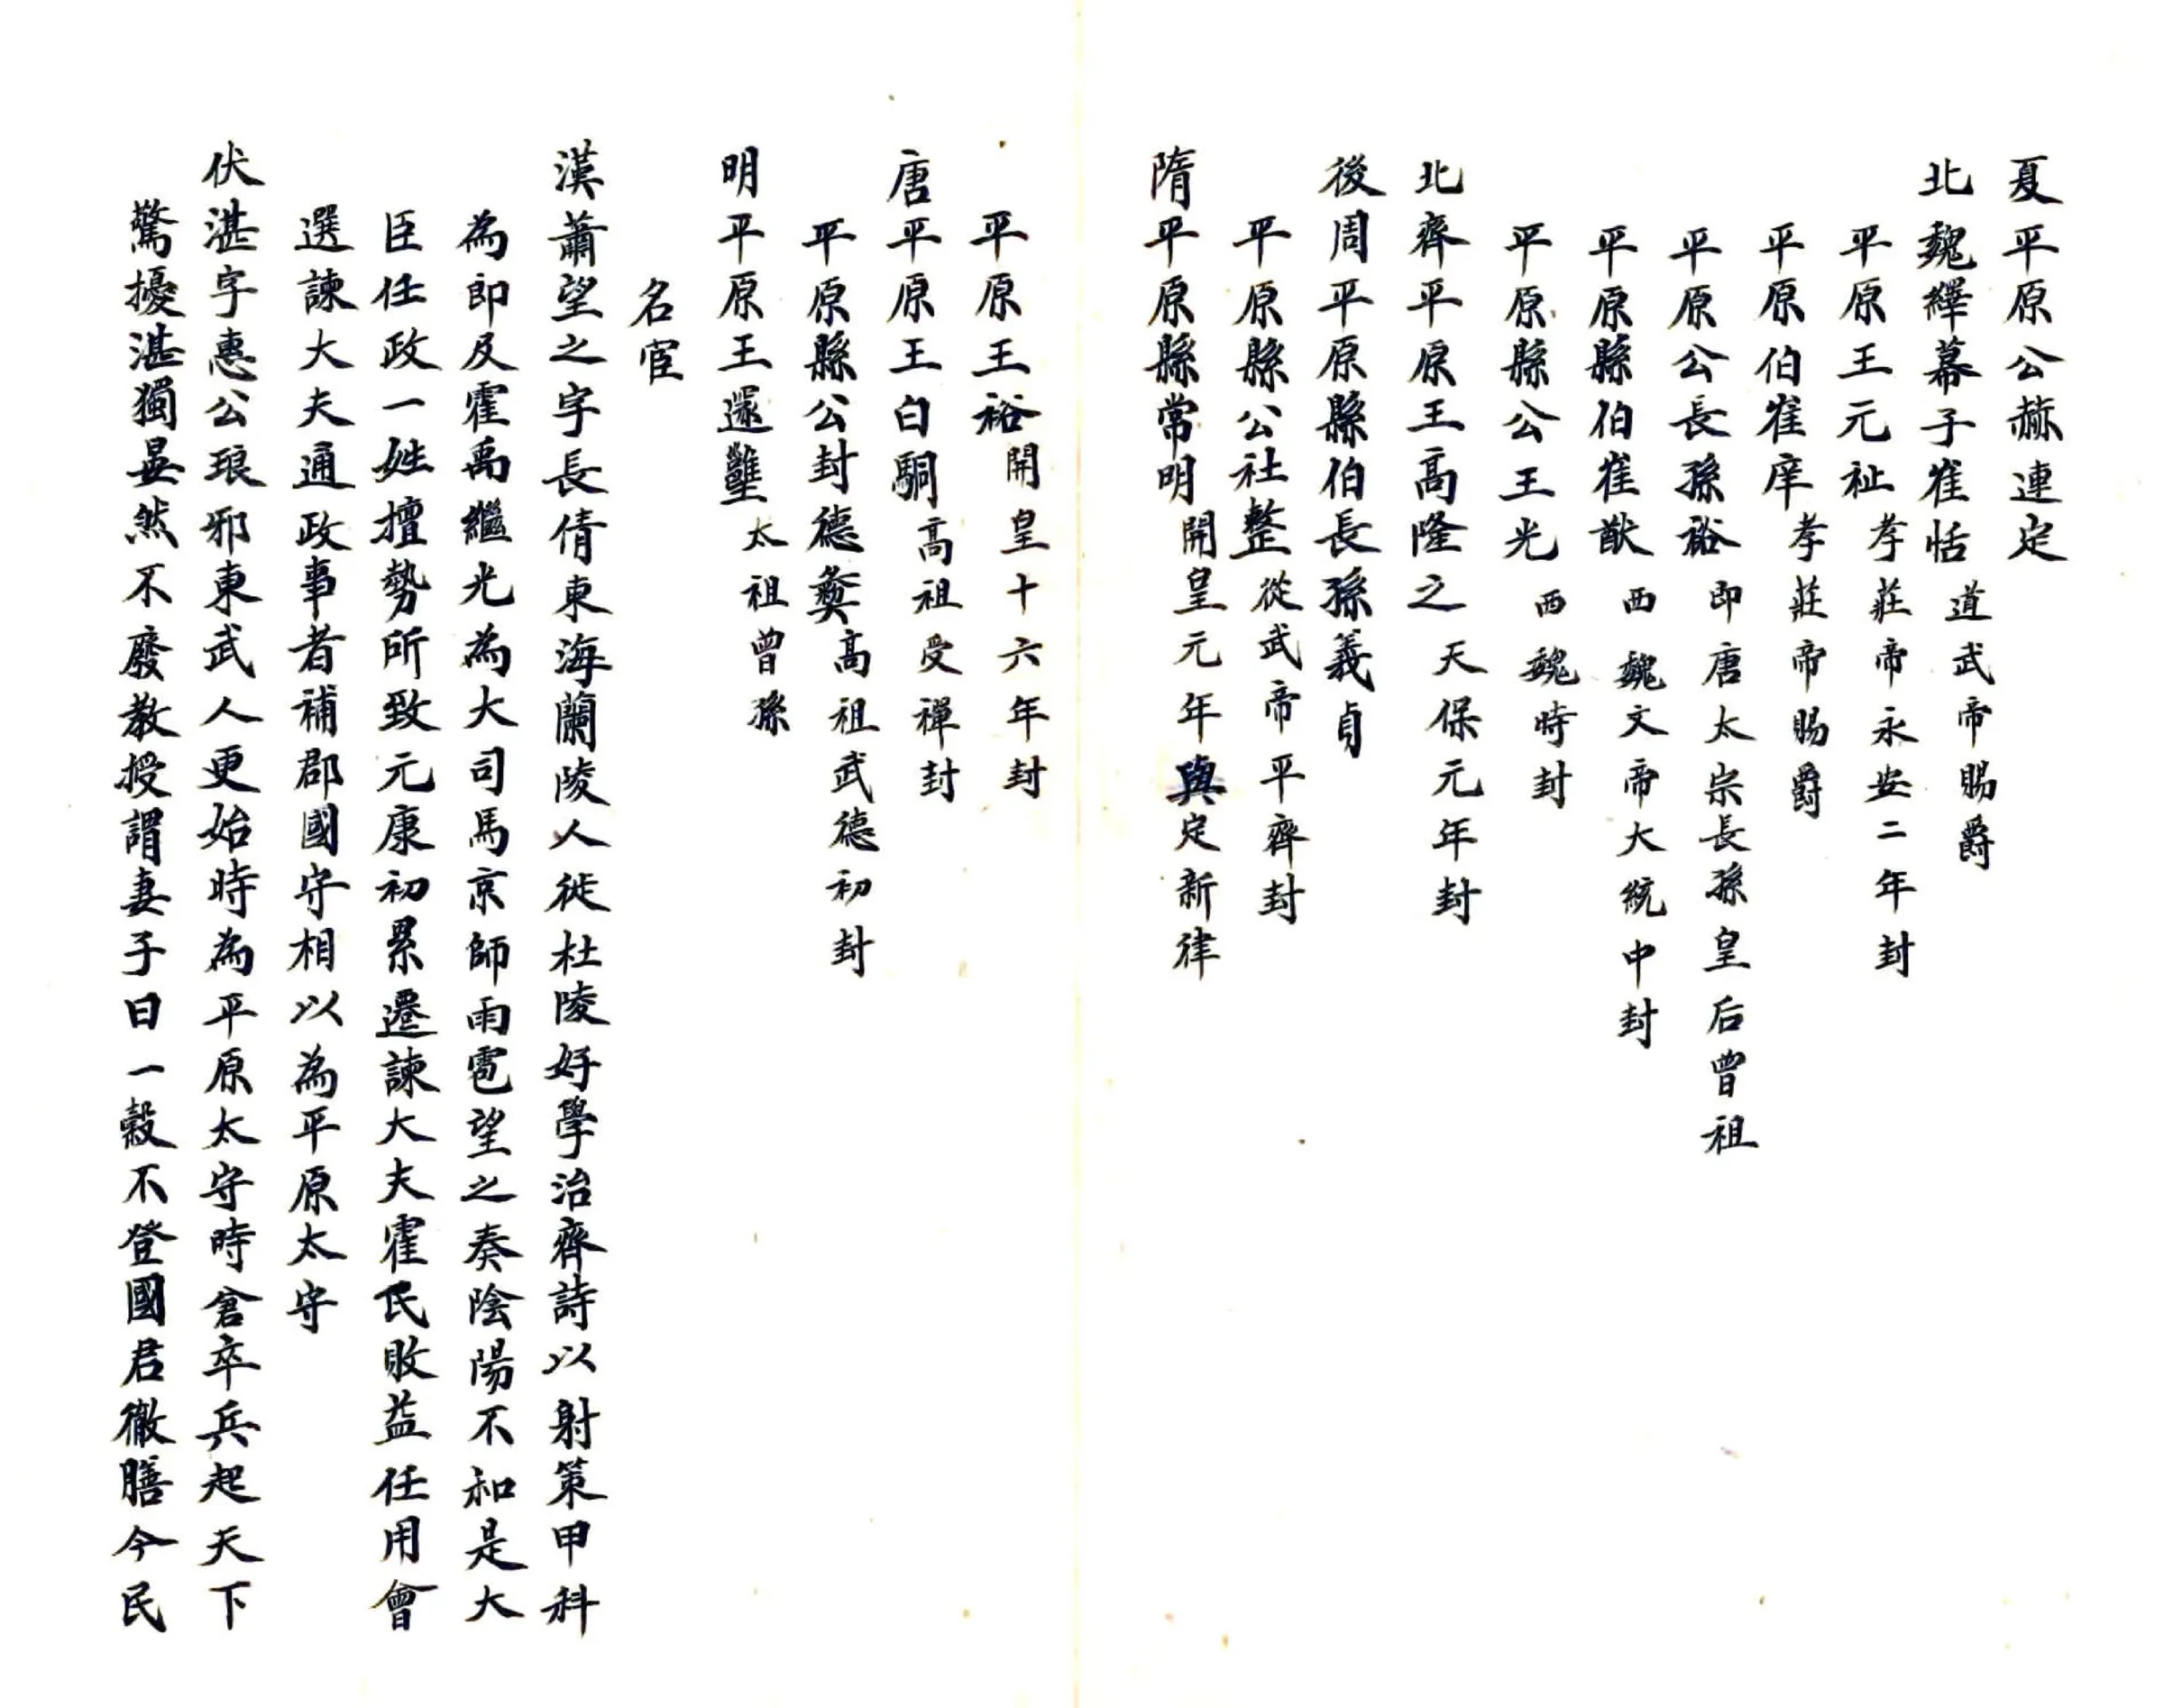 夏平原公赫連定
北魏繹幕子崔恬道武帝賜爵
平原王元祉孝莊帝永安二年封
平原伯崔庠孝莊帝賜爵
平原公長孫裕即唐太宗長孫皇后曾祖
平原縣伯崔猷西魏文帝大統中封
平原縣公王光西魏時封
北齊平原王高隆之天保元年封
後周平原縣伯長孫義貞
平原縣公社整從武帝平齊封
隋平原縣常明開皇元年與定新律
平原王裕開皇十六年封
唐平原王白駉高祖受禪封
平原縣公封德彝高祖武德初封
明平原王太祖曾孫
名宦
漢蕭望之字長倩東海蘭陵人徙杜陵好學治齊詩以射策甲科
為郎及霍禹繼光為大司馬京師雨雹望之奏陰陽不和是大
臣任政一姓擅勢所致元康初累遷諫大夫霍民敗益任用會
選諫大夫通政事者補郡國守相以為平原太守
伏湛字惠公琅邪東武人更始時為平原太守時倉卒兵起天下
驚擾湛獨晏然不廢教授謂妻子曰一穀不登國君徹膳今民